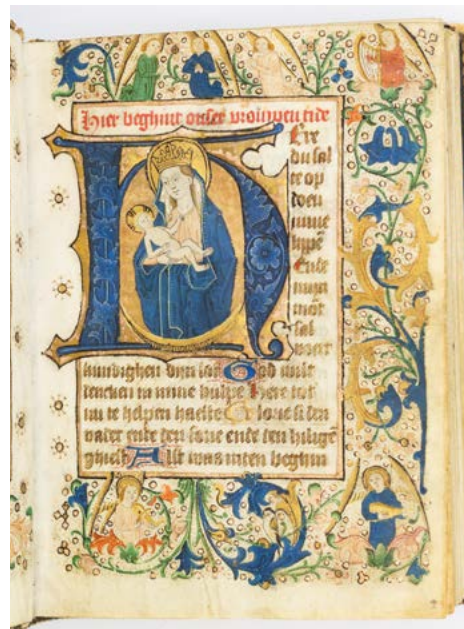 Hier beghint onser vrouwen tide
HEre
du sal
te op
doen
mine
lippē
Ende
mijn
mōt
sal
voert
kundighen dijn lof God wilt
dencken in mine hulpe Here tot
mi te helpen haeste Glorie si den
vader ende den sone ende den hilighē
gheest Alst was inden beghin